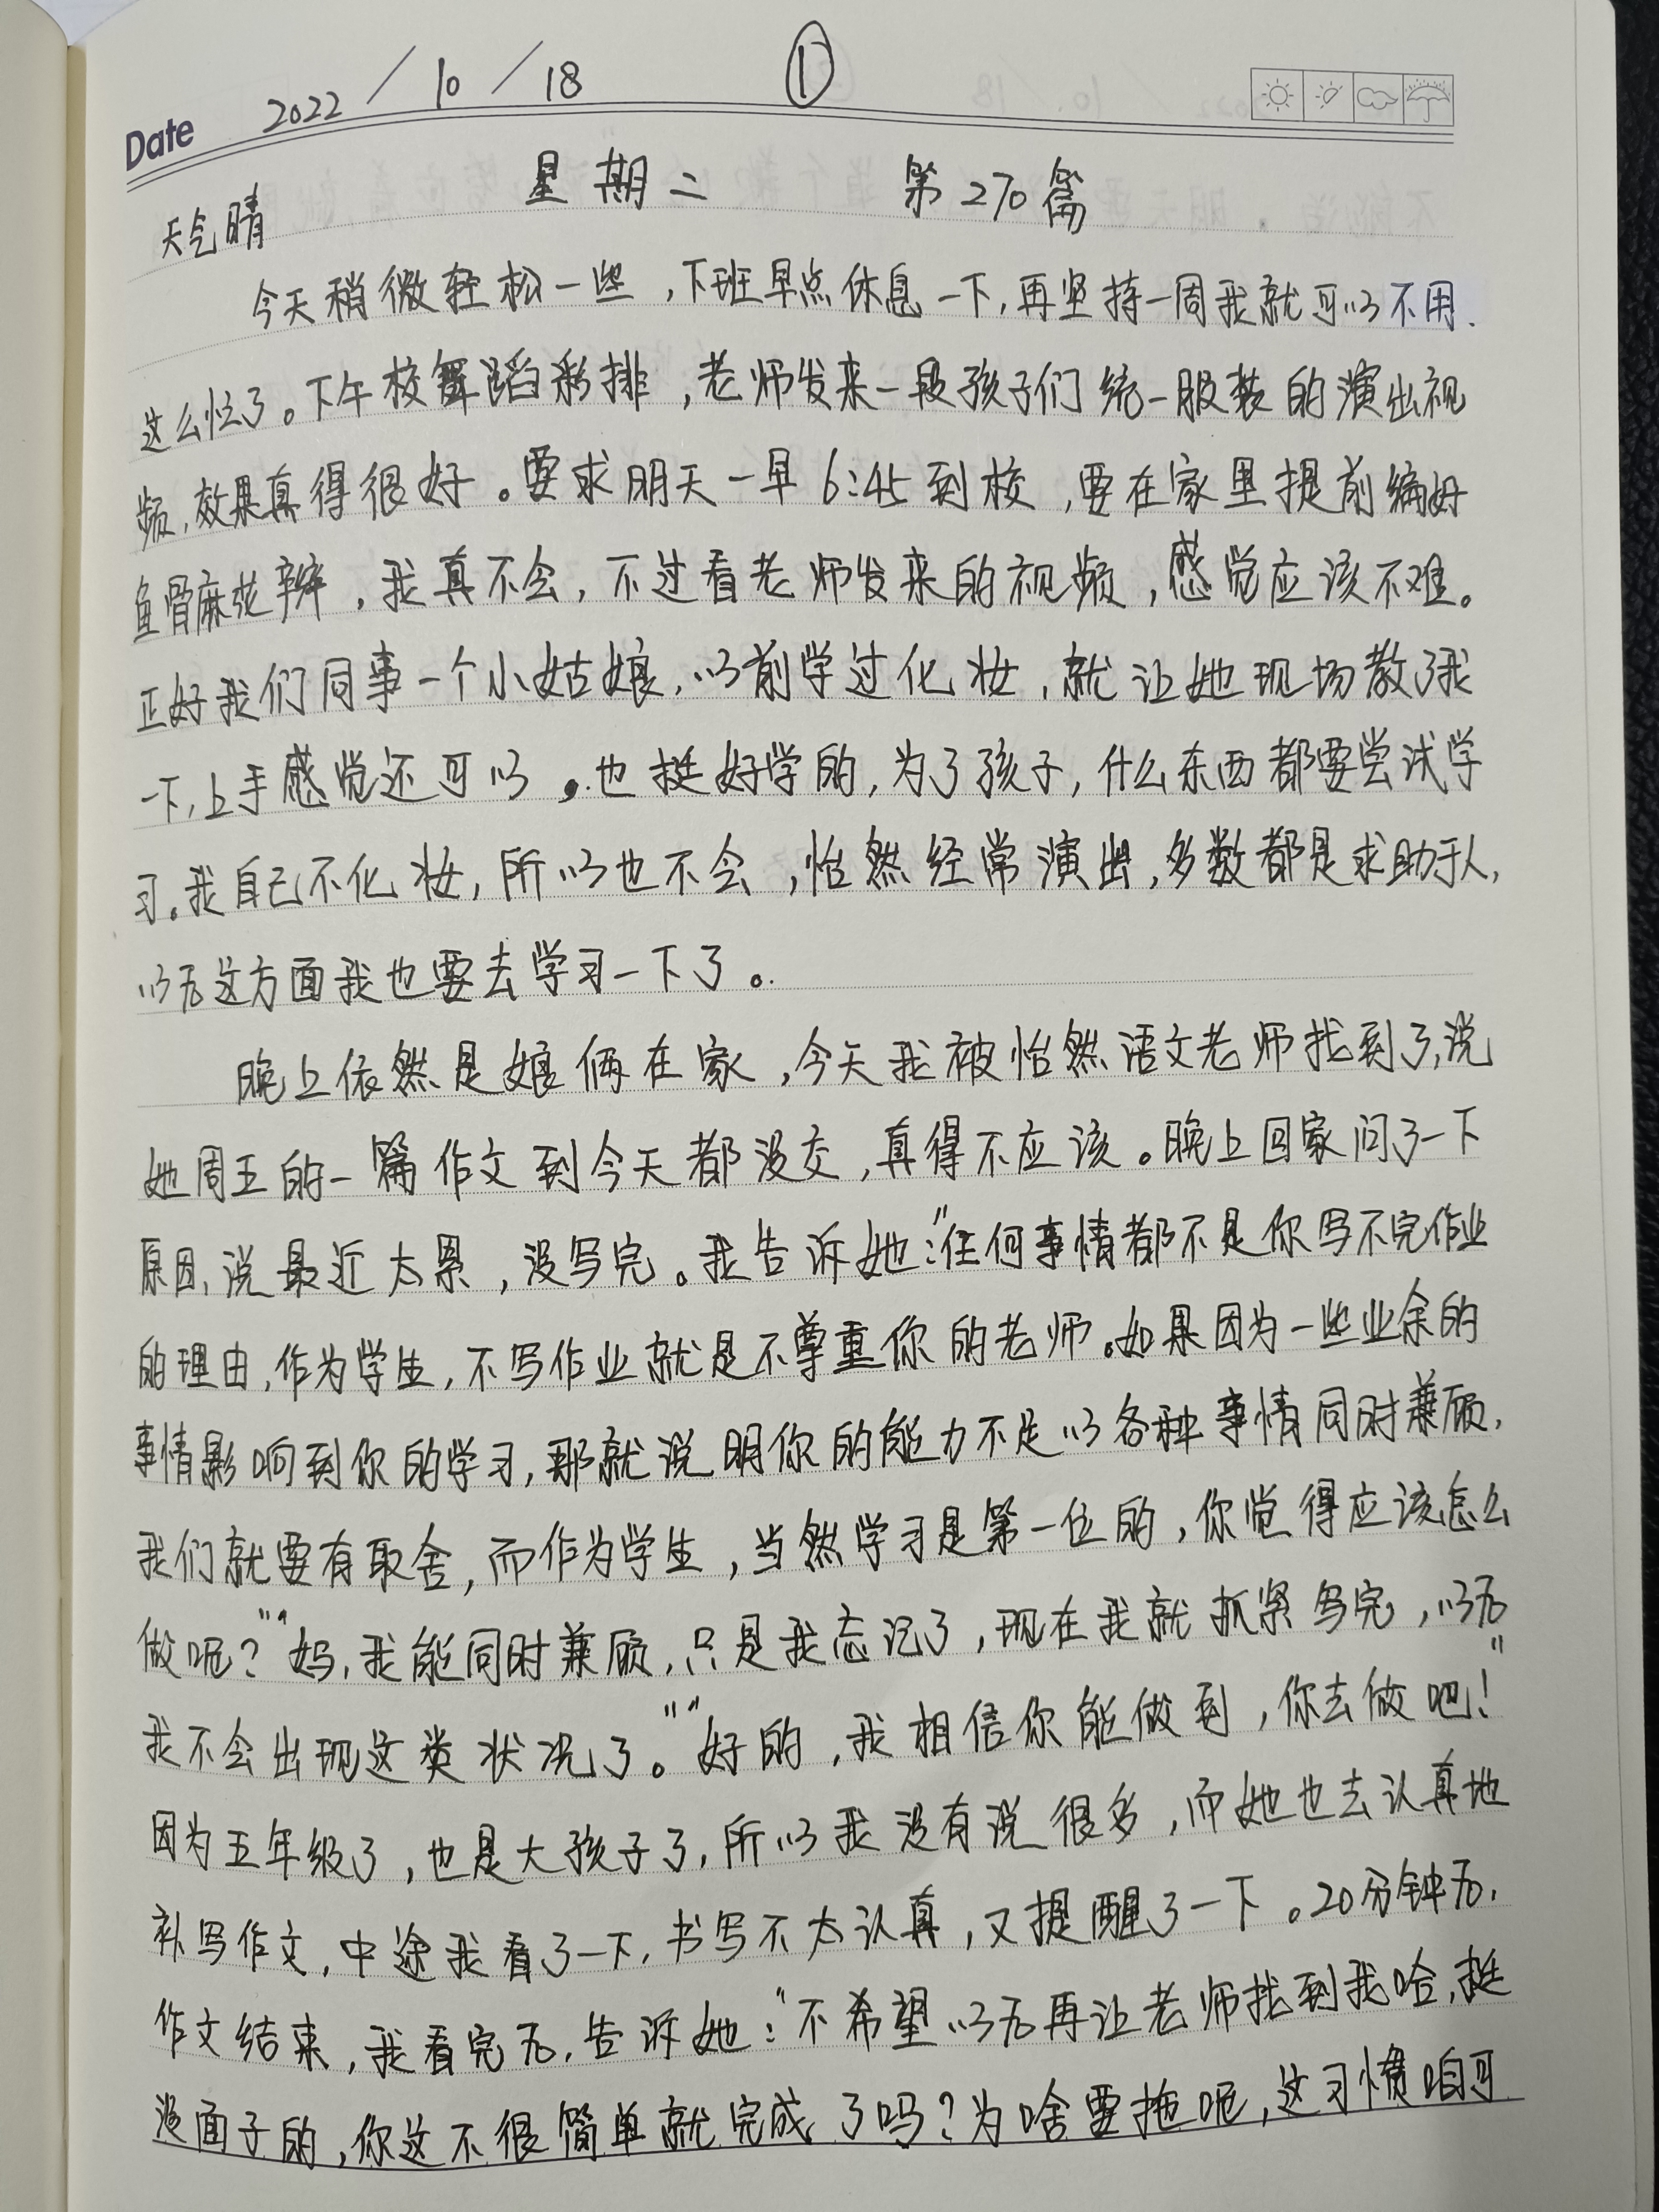 ①
Date 2022/10/18
星期二 第270篇
天气晴
今天稍微轻松一些,下班早点休息一下,再坚持一周我就可以不用
这么忙了。下午校舞蹈彩排,老师发来一段孩子们统一服装的演出视
频,效果真得很好。要求明天一早6:45到校,要在家里提前编好
鱼骨麻花辫,我真不会,不过看老师发来的视频,感觉应该不难。
正好我们同事一个小姑娘,以前学过化妆,就让她现场教了我
一下,上手感觉还可以,也挺好学的,为了孩子,什么东西都要尝试学
习。我自己不化妆,所以也不会,怡然经常演出,多数都是求助于人,
以后这方面我也要去学习一下了。
晚上依然是娘俩在家,今天我被怡然语文老师找到了,说
她周五的一篇作文到今天都没交,真得不应该。晚上回家问了一下
原因,说最近太累,没写完。我告诉她:"任何事情都不是你写不完作业
的理由,作为学生,不写作业就是不尊重你的老师。如果因为一些业余的
事情影响到你的学习,那就说明你的能力不足以各种事情同时兼顾,
我们就要有取舍,而作为学生,当然学习是第一位的,你觉得应该怎么
做呢?""妈,我能同时兼顾,只是我忘记了,现在我就抓紧写完,以后
我不会出现这类状况了。""好的,我相信你能做到,你去做吧!"
因为五年级了,也是大孩子了,所以我没有说很多,而她也去认真地
补写作文,中途我看了一下,书写不太认真,又提醒了一下。20分钟后,
作文结束,我看完后,告诉她:"不希望以后再让老师找到我哈,挺
没面子的,你这不很简单就完成了吗?为啥要拖呢,这习惯咱可